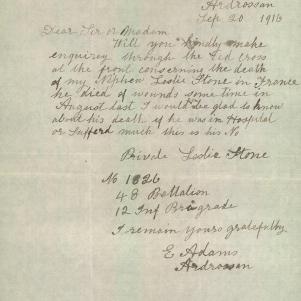 Ardrossan
Sep 20 1916
Dear Sir or Madam
Will you kindly make
enquirey through the Red cross
at the front concerning the death
of my Nephew Leslie Stone in France
he died of wounds some time in
August last I would be glad to know
about his death if he was in Hospital
or Sufferd much this is his No
Private Leslie Stone
No 1826
48 Battalion
12 Inf Brigrade
I remain yours gratefully
E Adams
Ardrossan